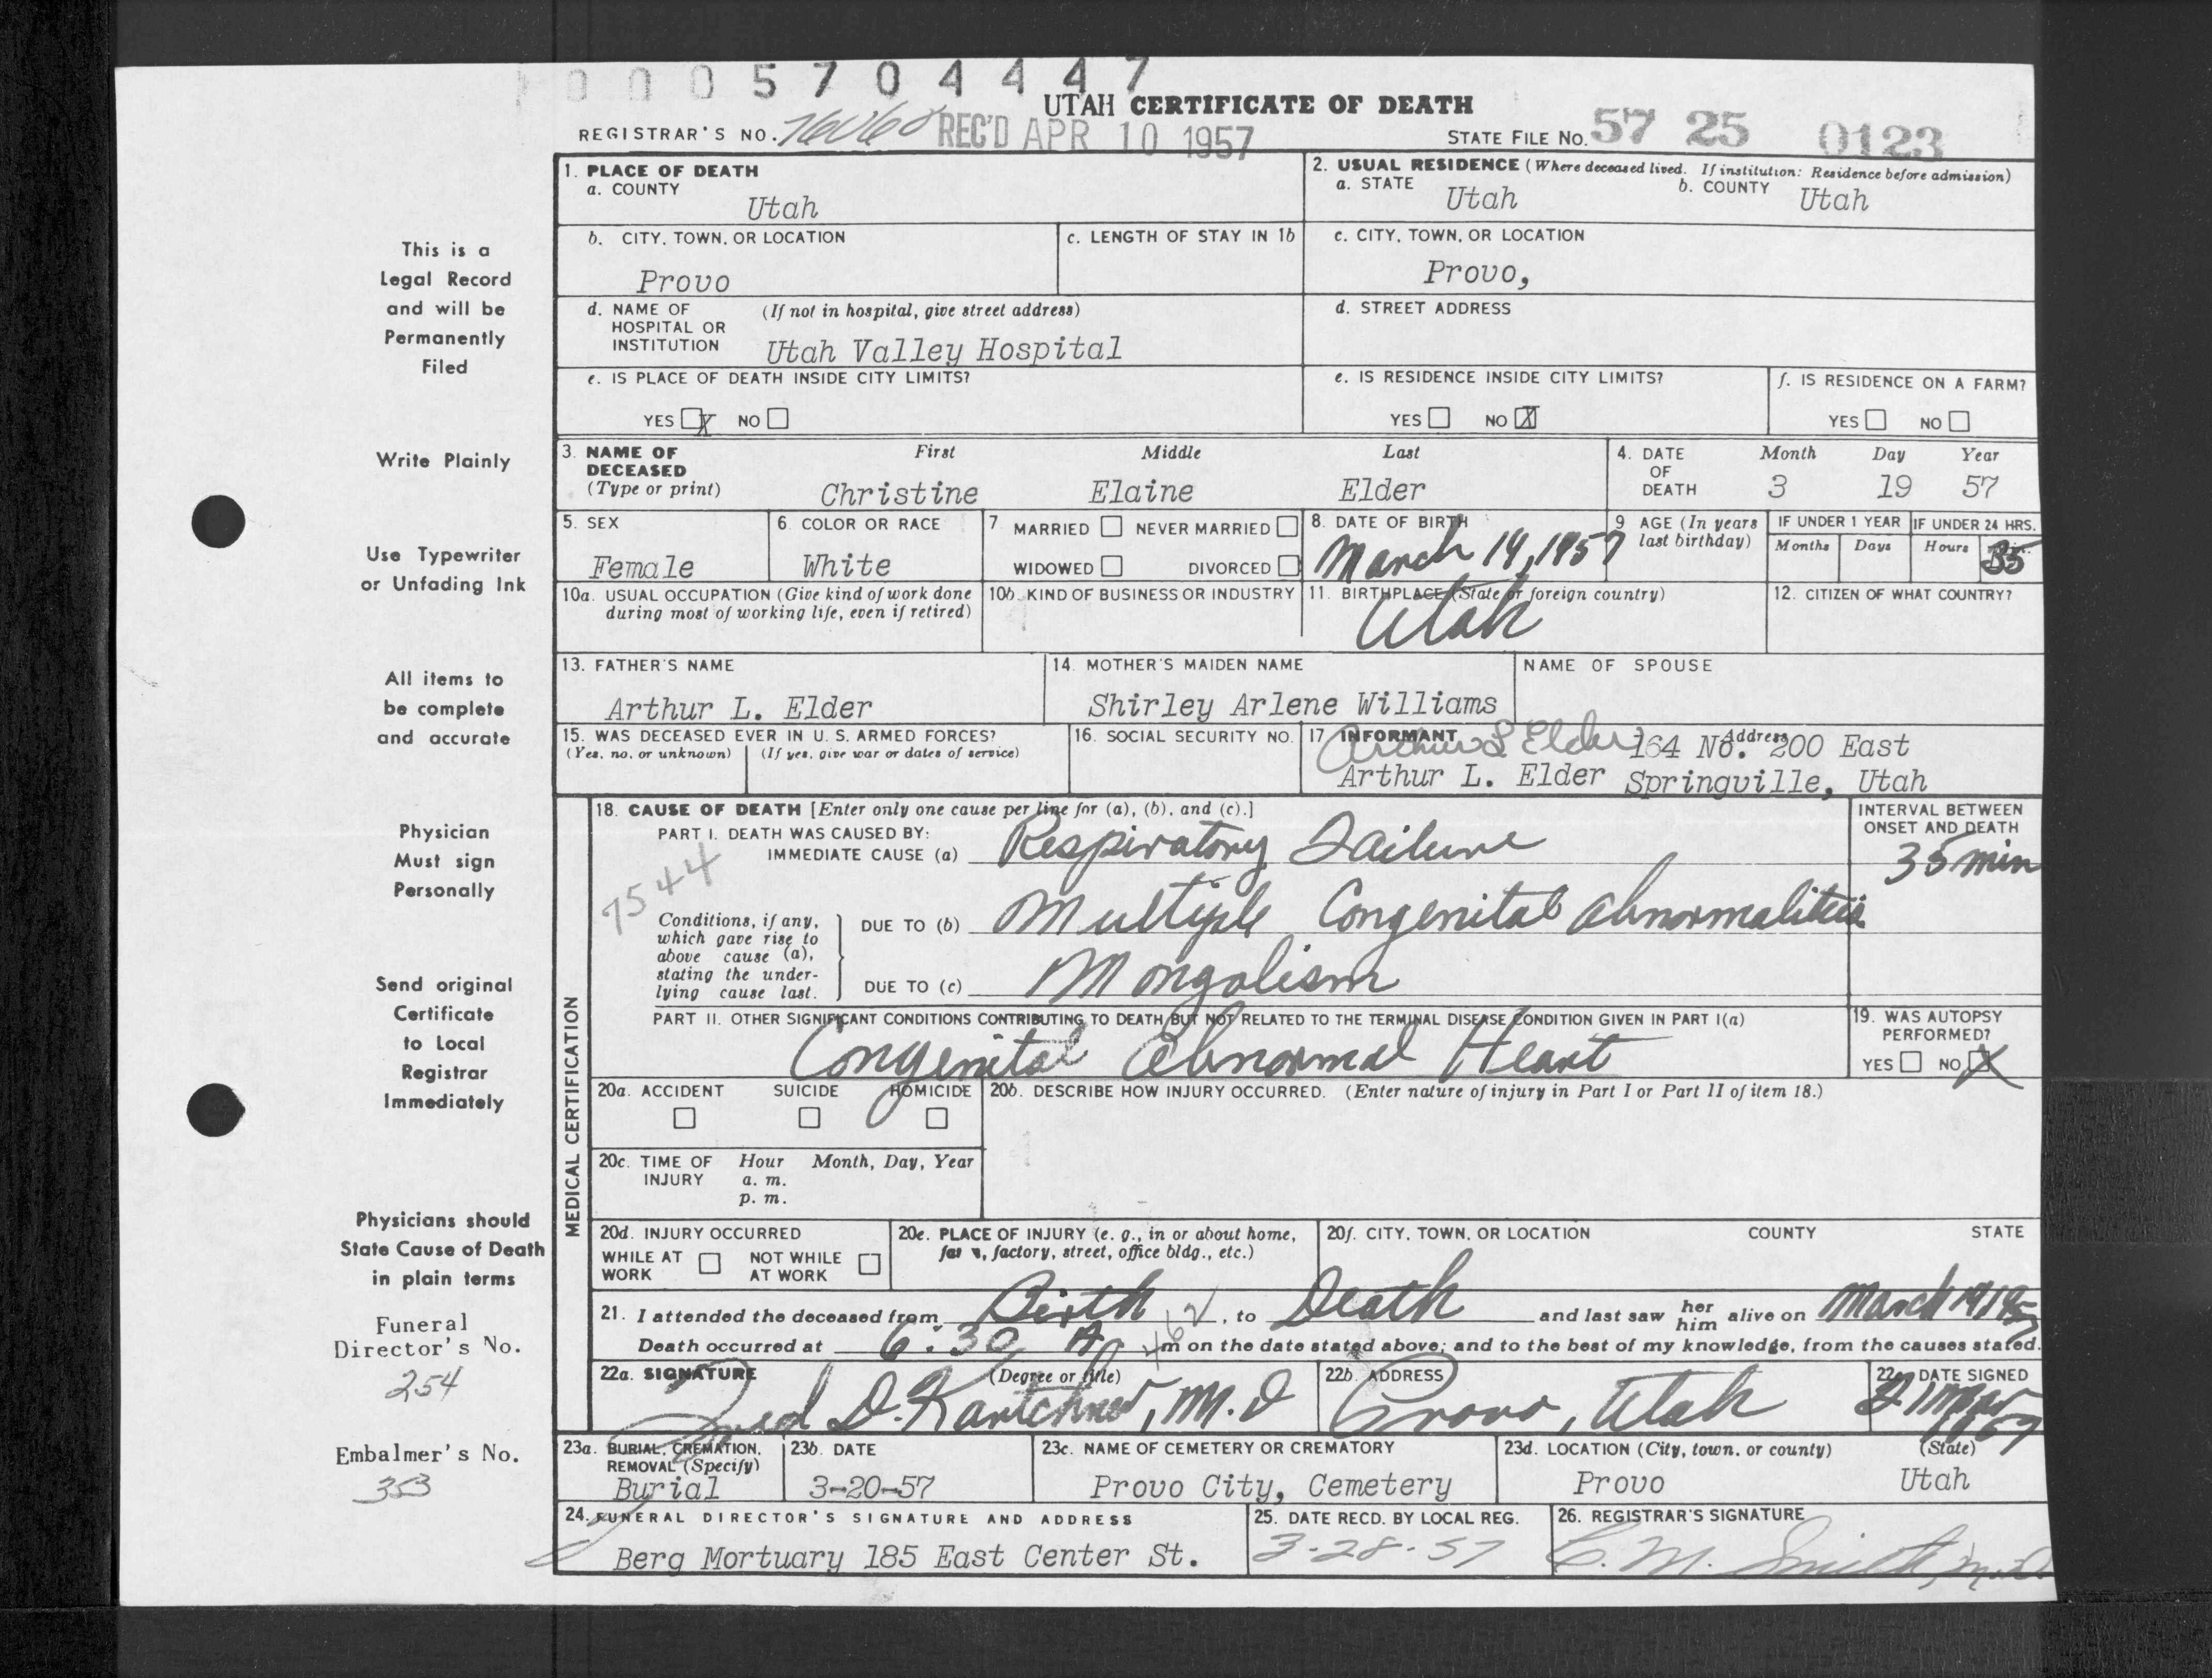 0005704447
UTAH CERTIFICATE OF DEATH
REGISTRAR'S NO. REC'D APR 10 1957 STATE FILE NO. 57 25 0123
1. PLACE OF DEATH
a. COUNTY
Utah
2. USUAL RESIDENCE (Where deceased lived. If institution: Residence before admission)
a. STATE Utah b. COUNTY Utah
b. CITY, TOWN, OR LOCATION
Provo
c. LENGTH OF STAY IN 1b
c. CITY, TOWN, OR LOCATION
Provo,
d. NAME OF HOSPITAL OR INSTITUTION (If not in hospital, give street address)
Utah Valley Hospital
d. STREET ADDRESS
e. IS PLACE OF DEATH INSIDE CITY LIMITS?
YES X NO
e. IS RESIDENCE INSIDE CITY LIMITS?
YES NO X
f. IS RESIDENCE ON A FARM?
YES NO
3. NAME OF DECEASED (Type or print)
First Middle Last
Christine Elaine Elder
4. DATE OF DEATH
Month Day Year
3 19 57
5. SEX
Female
6. COLOR OR RACE
White
7. MARRIED NEVER MARRIED
WIDOWED DIVORCED
8. DATE OF BIRTH
March 19, 1957
9 AGE (In years last birthday)
IF UNDER 1 YEAR IF UNDER 24 HRS.
Months Days Hours 35
10a. USUAL OCCUPATION (Give kind of work done during most of working life, even if retired)
10b. KIND OF BUSINESS OR INDUSTRY
11. BIRTHPLACE (State or foreign country)
Utah
12. CITIZEN OF WHAT COUNTRY?
13. FATHER'S NAME
Arthur L. Elder
14. MOTHER'S MAIDEN NAME
Shirley Arlene Williams
NAME OF SPOUSE
15. WAS DECEASED EVER IN U. S. ARMED FORCES?
(Yes, no, or unknown) (If yes, give war or dates of service)
16. SOCIAL SECURITY NO.
17 INFORMANT Address
Arthur L Elder 164 No. 200 East
Arthur L. Elder Springville, Utah
MEDICAL CERTIFICATION
18. CAUSE OF DEATH [Enter only one cause per line for (a), (b), and (c).]
INTERVAL BETWEEN ONSET AND DEATH
PART I. DEATH WAS CAUSED BY:
IMMEDIATE CAUSE (a) Respiratory Failure
35 min
7544
Conditions, if any, which gave rise to above cause (a), stating the underlying cause last.
DUE TO (b) Multiple Congenital Abnormalities
DUE TO (c) Mongolism
PART II. OTHER SIGNIFICANT CONDITIONS CONTRIBUTING TO DEATH BUT NOT RELATED TO THE TERMINAL DISEASE CONDITION GIVEN IN PART I(a)
Congenital Abnormal Heart
19. WAS AUTOPSY PERFORMED?
YES NO X
20a. ACCIDENT SUICIDE HOMICIDE
20b. DESCRIBE HOW INJURY OCCURRED. (Enter nature of injury in Part I or Part II of item 18.)
20c. TIME OF INJURY Hour Month, Day, Year
a. m.
p. m.
20d. INJURY OCCURRED
WHILE AT WORK NOT WHILE AT WORK
20e. PLACE OF INJURY (e. g., in or about home, farm, factory, street, office bldg., etc.)
20f. CITY, TOWN, OR LOCATION COUNTY STATE
21. I attended the deceased from Birth, to Death and last saw her him alive on March 19 1957
Death occurred at 6:30 A m on the date stated above; and to the best of my knowledge, from the causes stated.
22a. SIGNATURE (Degree or title)
D. Kartchner, M.D
22b. ADDRESS
Provo, Utah
22c. DATE SIGNED
21 Mar 1957
23a. BURIAL, CREMATION, REMOVAL (Specify)
Burial
23b. DATE
3-20-57
23c. NAME OF CEMETERY OR CREMATORY
Provo City, Cemetery
23d. LOCATION (City, town, or county) (State)
Provo Utah
24. FUNERAL DIRECTOR'S SIGNATURE AND ADDRESS
Berg Mortuary 185 East Center St.
25. DATE RECD. BY LOCAL REG.
3-28-57
26. REGISTRAR'S SIGNATURE
C. M. Smith, M.D.
This is a
Legal Record
and will be
Permanently
Filed
Write Plainly
Use Typewriter
or Unfading Ink
All items to
be complete
and accurate
Physician
Must sign
Personally
Send original
Certificate
to Local
Registrar
Immediately
Physicians should
State Cause of Death
in plain terms
Funeral
Director's No.
254
Embalmer's No.
353